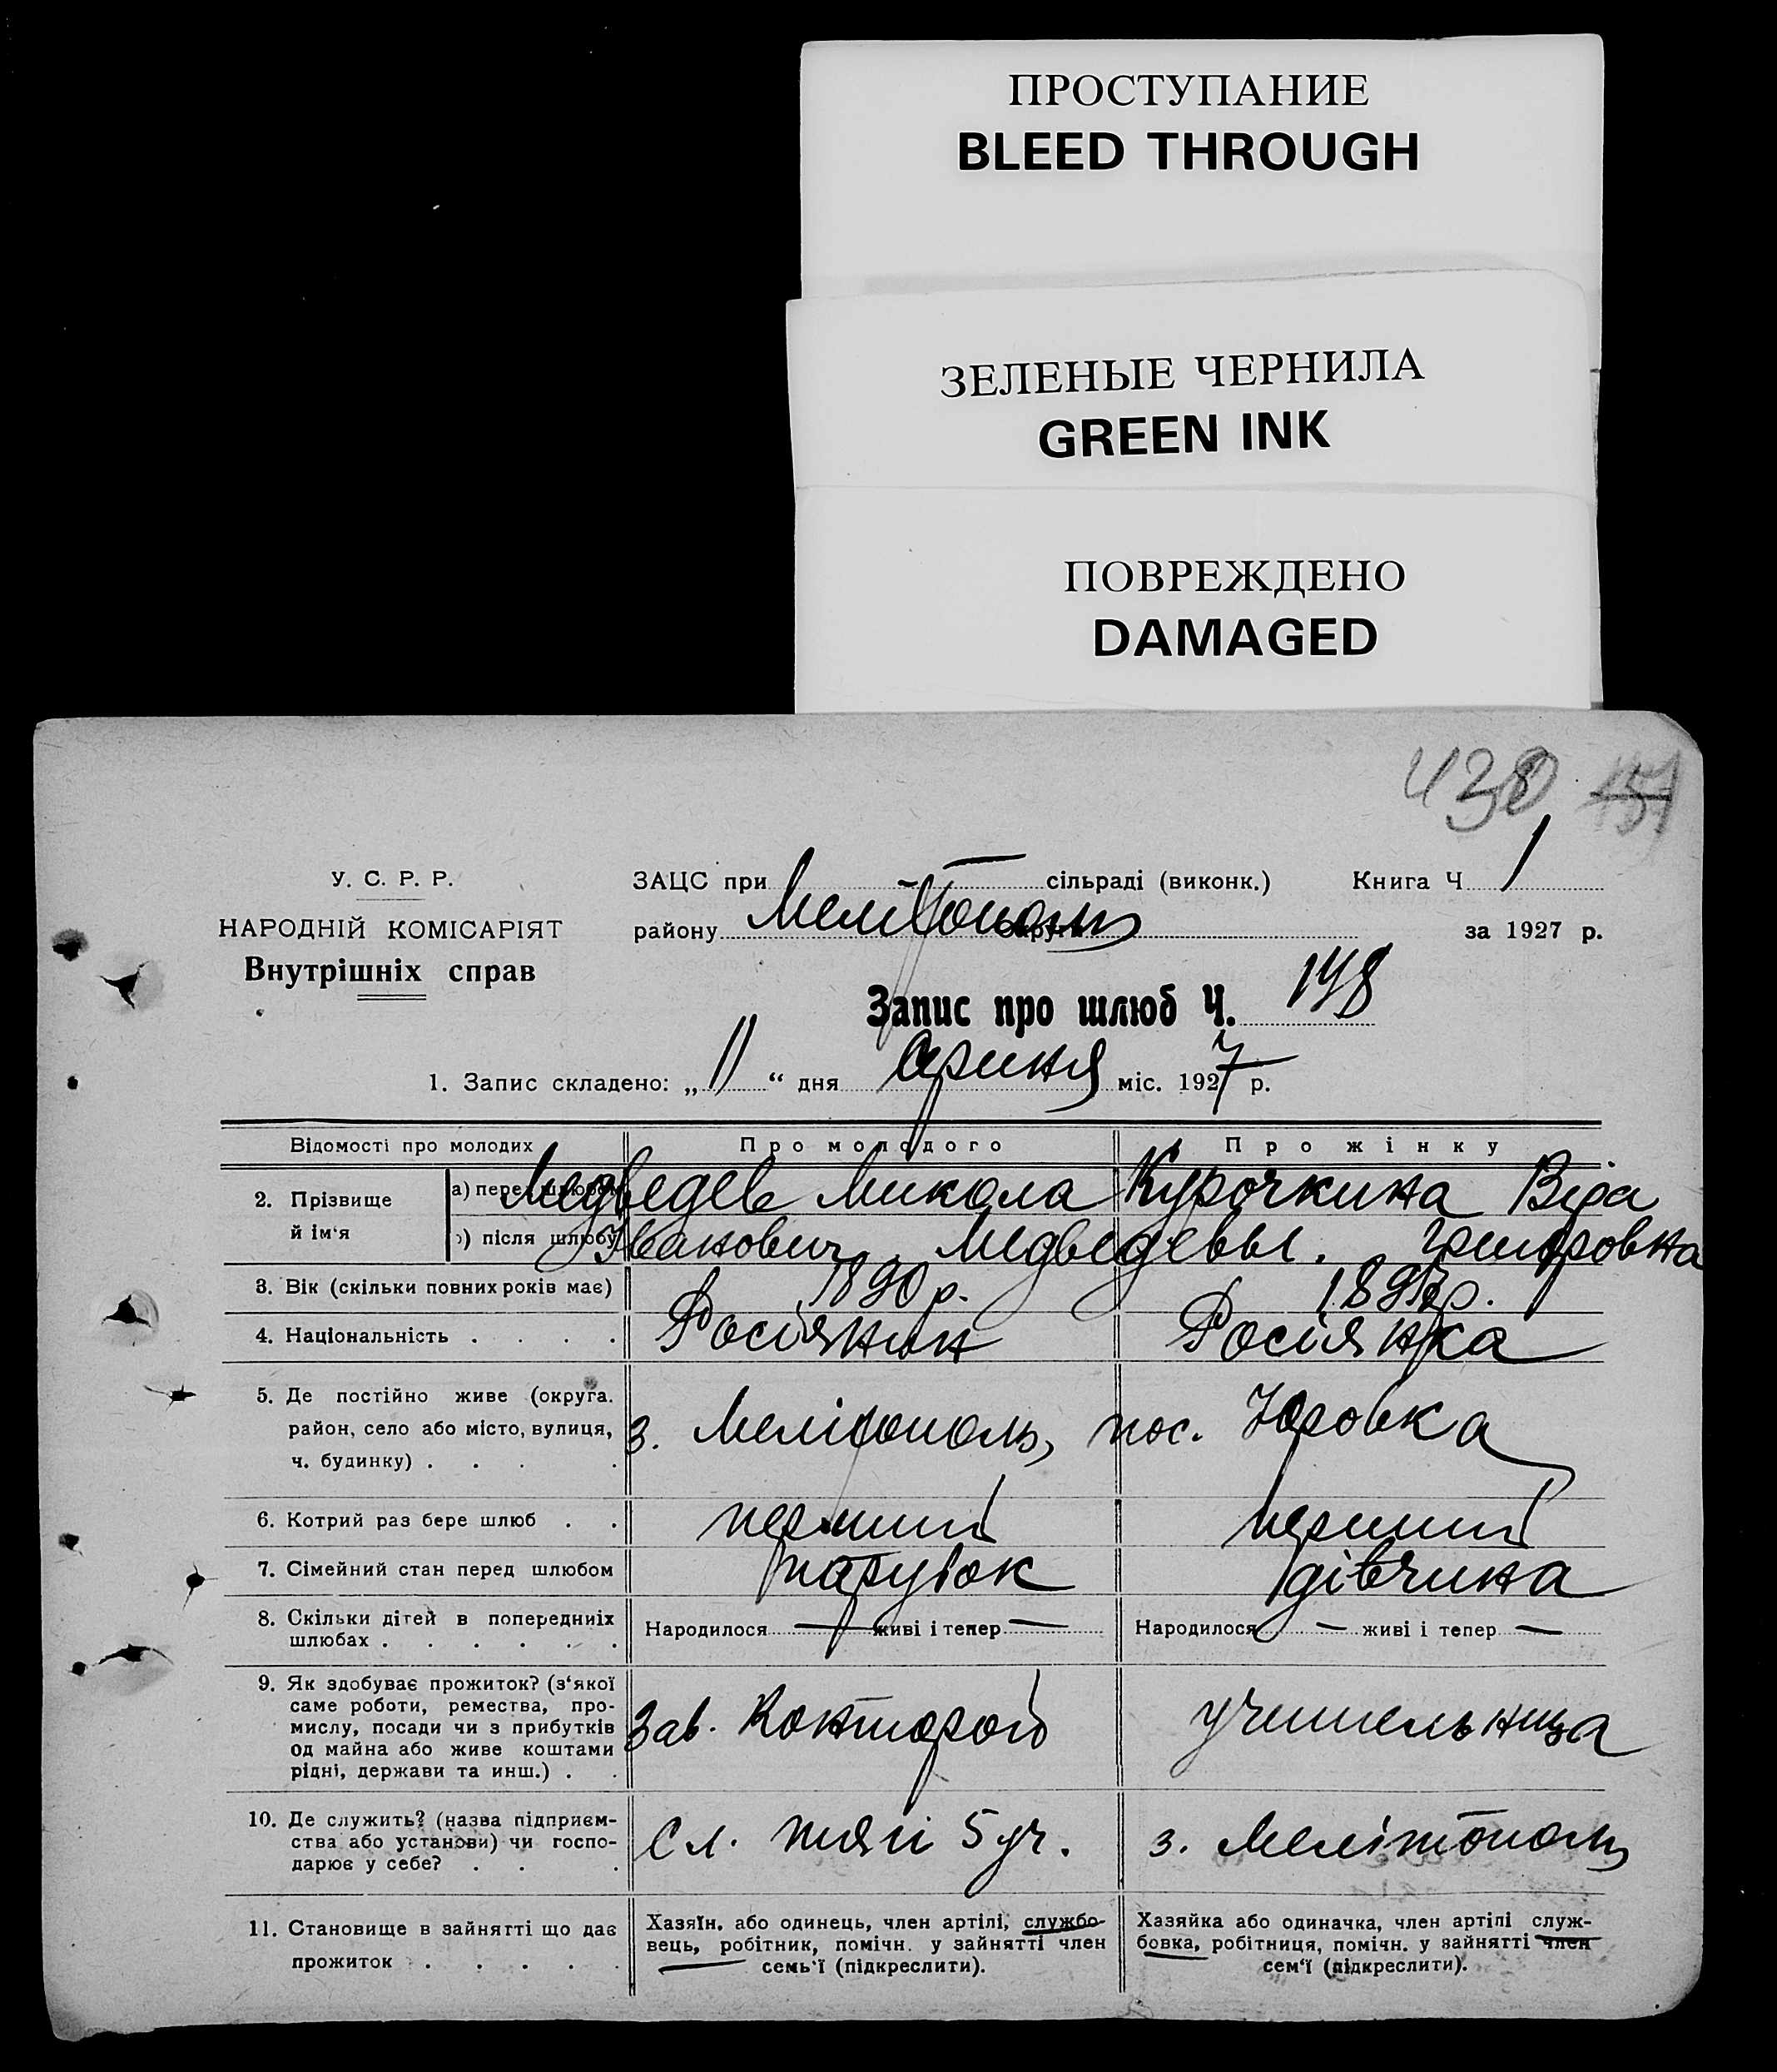 ПРОСТУПАНИЕ
BLEED THROUGH
ЗЕЛЕНЫЕ ЧЕРНИЛА
GREEN INK
ПОВРЕЖДЕНО
DAMAGED
438 151
У. С. Р. Р. ЗАЦС при сільраді (виконк.) Книга Ч. 1
НАРОДНІЙ КОМІСАРІЯТ району Мелітополь округи за 1927 р.
Внутрішніх справ
Запис про шлюб Ч. 148
1. Запис складено: „ 11 “ дня серпня міс. 1927 р.
Відомості про молодих Про молодого Про жінку
2. Прізвище й ім'я а) перед шлюбом Медведев Микола Курочкина Віра
б) після шлюбу Іванович Медведевы. Григоровна
3. Вік (скільки повних років має) 1890 р. 1897 р.
4. Національність . . . . Росіянин Росіянка
5. Де постійно живе (округа.
район, село або місто, вулиця, з. Мелітополь, пос. Юровка
ч. будинку) . . . .
6. Котрий раз бере шлюб . . перший перший
7. Сімейний стан перед шлюбом парубок дівчина
8. Скільки дітей в попередніх Народилося — живі і тепер — Народилося — живі і тепер —
шлюбах . . . . . .
9. Як здобуває прожиток? (з'якої
саме роботи, ремества, про-
мислу, посади чи з прибутків Зав. Конторой учительница
од майна або живе коштами
рідні, держави та инш.) . .
10. Де служить? (назва підприєм-
ства або установи) чи госпо- Сл. тяги 5 уч. з. Мелітополь
дарює у себе? . . .
11. Становище в зайнятті що дає Хазяїн, або одинець, член артілі, службо- Хазяйка або одиначка, член артілі служ-
вець, робітник, помічн. у зайнятті член бовка, робітниця, помічн. у зайнятті член
прожиток . . . . . семь'ї (підкреслити). сем'ї (підкреслити).